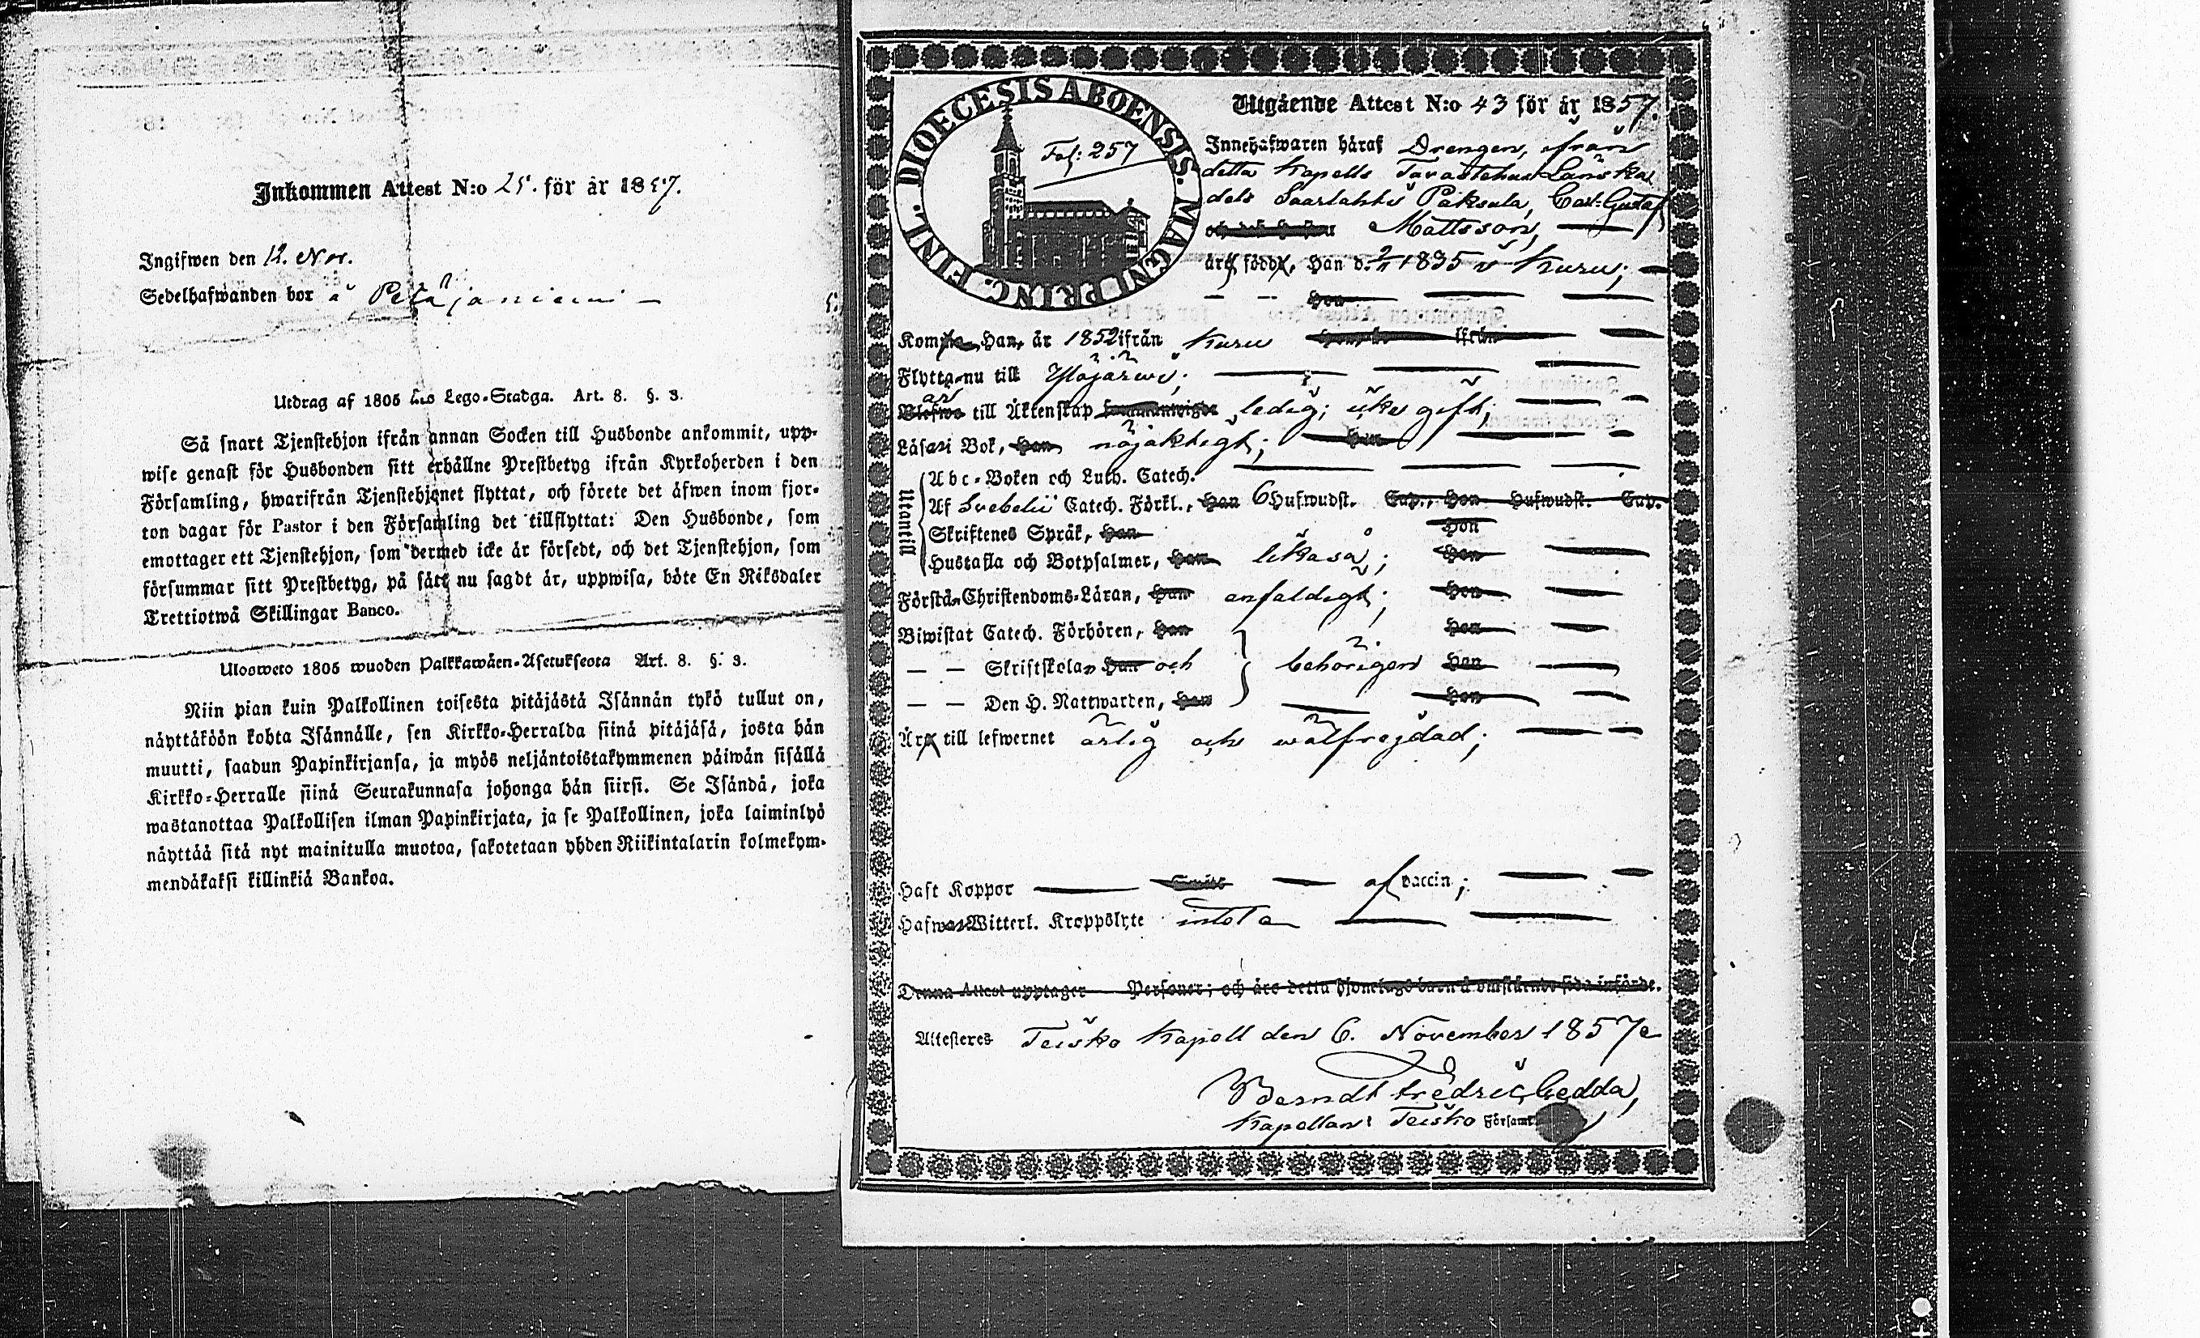 Inkommen Attest N:o 25. för år 1857.
Ingifwen den 12. Nov.
Sedelhafwanden bor å Petäjäniemi
Utdrag af 1805 års Lego-Stadga. Art. 8. §. 3.
Så snart Tjenstehjon ifrån annan Socken till Husbonde ankommit, upp-
wise genast för Husbonden sitt erhållne Prestbetyg ifrån Kyrkoherden i den
Församling, hwarifrån Tjenstehjonet flyttat, och förete det äfwen inom fjor-
ton dagar för Pastor i den Församling det tillflyttat: Den Husbonde, som
emottager ett Tjenstehjon, som dermed icke är försedt, och det Tjenstehjon, som
försummar sitt Prestbetyg, på sätt nu sagdt är, uppwisa, böte En Riksdaler
Trettiotwå Skillingar Banco.
Ulosweto 1805 wuoden Palkkawäen-Asetuksesta Art. 8. §. 3.
Niin pian kuin Palkollinen toisesta pitäjästä Isännän tykö tullut on,
näyttäköön kohta Isännälle, sen Kirkko-Herralda siinä pitäjäsä, josta hän
muutti, saadun Papinkirjansa, ja myös neljäntoistakymmenen päiwän sisällä
Kirkko-Herralle siinä Seurakunnasa johonga hän siirsi. Se Isändä, joka
wastanottaa Palkollisen ilman Papinkirjata, ja se Palkollinen, joka laiminlyö
näyttää sitä nyt mainitulla muotoa, sakotetaan yhden Riikintalarin kolmekym-
mendäkaksi killinkiä Bankoa.
DIOECESIS ABOENSIS. MAGNI PRINC. FINL.
Fol: 257
Utgående Attest N:o 43 för år 1857.
Innehafwaren häraf Drengen, ifrån
detta Kapells Tavastehus Länska
dels Saarlahti Paksula, Carl Gustaf
Mattsson,
är född, Han d. 2/1 1835 i Kuru;
Hon
Kom Han, år 1852 ifrån Kuru
Flytta nu till Ylöjärwi;
är till Äktenskap ledig; icke gift;
Läsa i Bok, Han nöjaktigt; Hon
Utantill
Abc-Boken och Luth. Catech.
Af Svebelii Catech. Förkl., Han 6 Hufwudst. Cap., Hon Hufwudst. Cap.
Skriftenes Språk, Han Hon
Hustafla och Botpsalmer, Han likaså; Hon
Förstå Christendoms-Läran, Han enfaldigt; Hon
Biwistat Catech. Förhören, Han Hon
— — Skriftskola, Han och behörigen Hon
— — Den H. Nattwarden, Han Hon
Är till lefwernet ärlig och wälfrejdad;
Haft Koppor af vaccin;
Hafwa Witterl. Kroppslyte intet
Denna Attest upptager Personer; och äro detta Hjonelags barn å omstående sida införde.
Attesteres Teisko Kapell den 6. November 1857
Berndt Fredric Gedda,
Kapellan i Teisko Församl